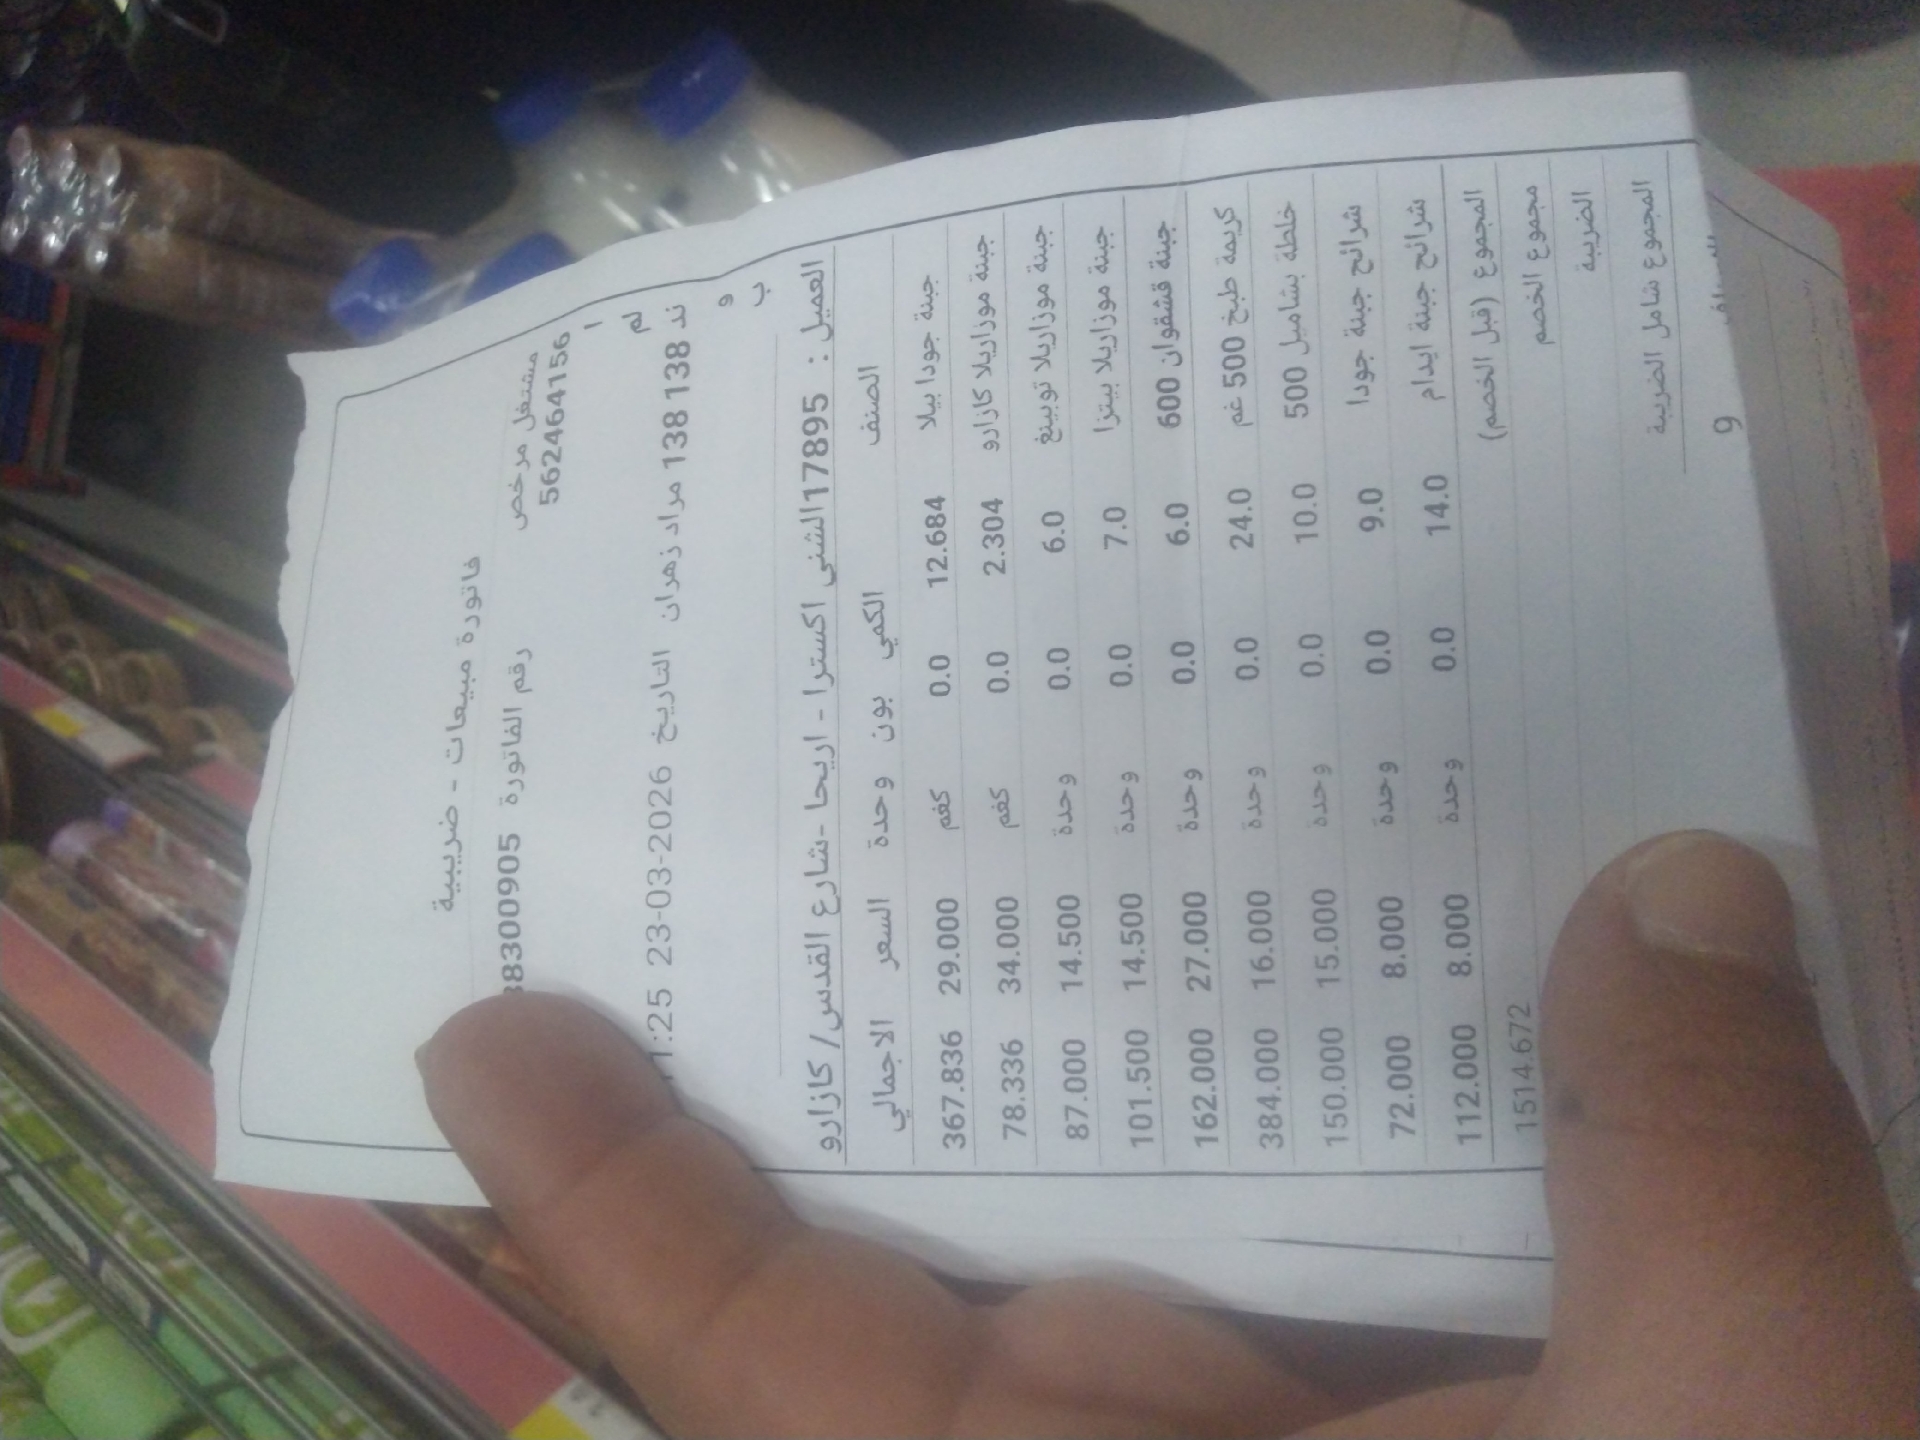 فاتورة مبيعات - ضريبية
مشتغل مرخص 562464156 رقم الفاتورة 38300905
ا
لم
ند 138 138 مراد زهران التاريخ 23-03-2026 1:25
و
ب
العميل : 17895الشني اكسترا - اريحا -شارع القدس/ كازارو
الصنف الكمي بون وحدة السعر الاجمالي
جبنة جودا بيلا 12.684 0.0 كغم 29.000 367.836
جبنة موزاريلا كازارو 2.304 0.0 كغم 34.000 78.336
جبنة موزاريلا توبينغ 6.0 0.0 وحدة 14.500 87.000
جبنة موزاريلا بيتزا 7.0 0.0 وحدة 14.500 101.500
جبنة قشقوان 600 6.0 0.0 وحدة 27.000 162.000
كريمة طبخ 500 غم 24.0 0.0 وحدة 16.000 384.000
خلطة بشاميل 500 10.0 0.0 وحدة 15.000 150.000
شرائح جبنة جودا 9.0 0.0 وحدة 8.000 72.000
شرائح جبنة ايدام 14.0 0.0 وحدة 8.000 112.000
المجموع (قبل الخصم) 1514.672
مجموع الخصم
الضريبة
المجموع شامل الضريبة
9